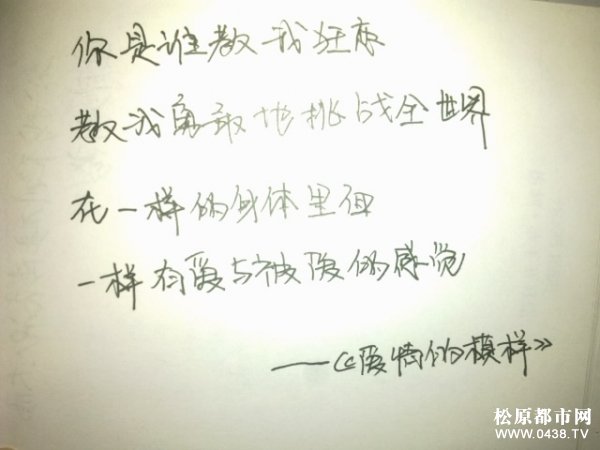 你是谁教我狂恋
教我勇敢地挑战全世界
在一样的身体里面
一样有爱与被爱的感觉
——《爱情的模样》
松原都市网
WWW.0438.TV